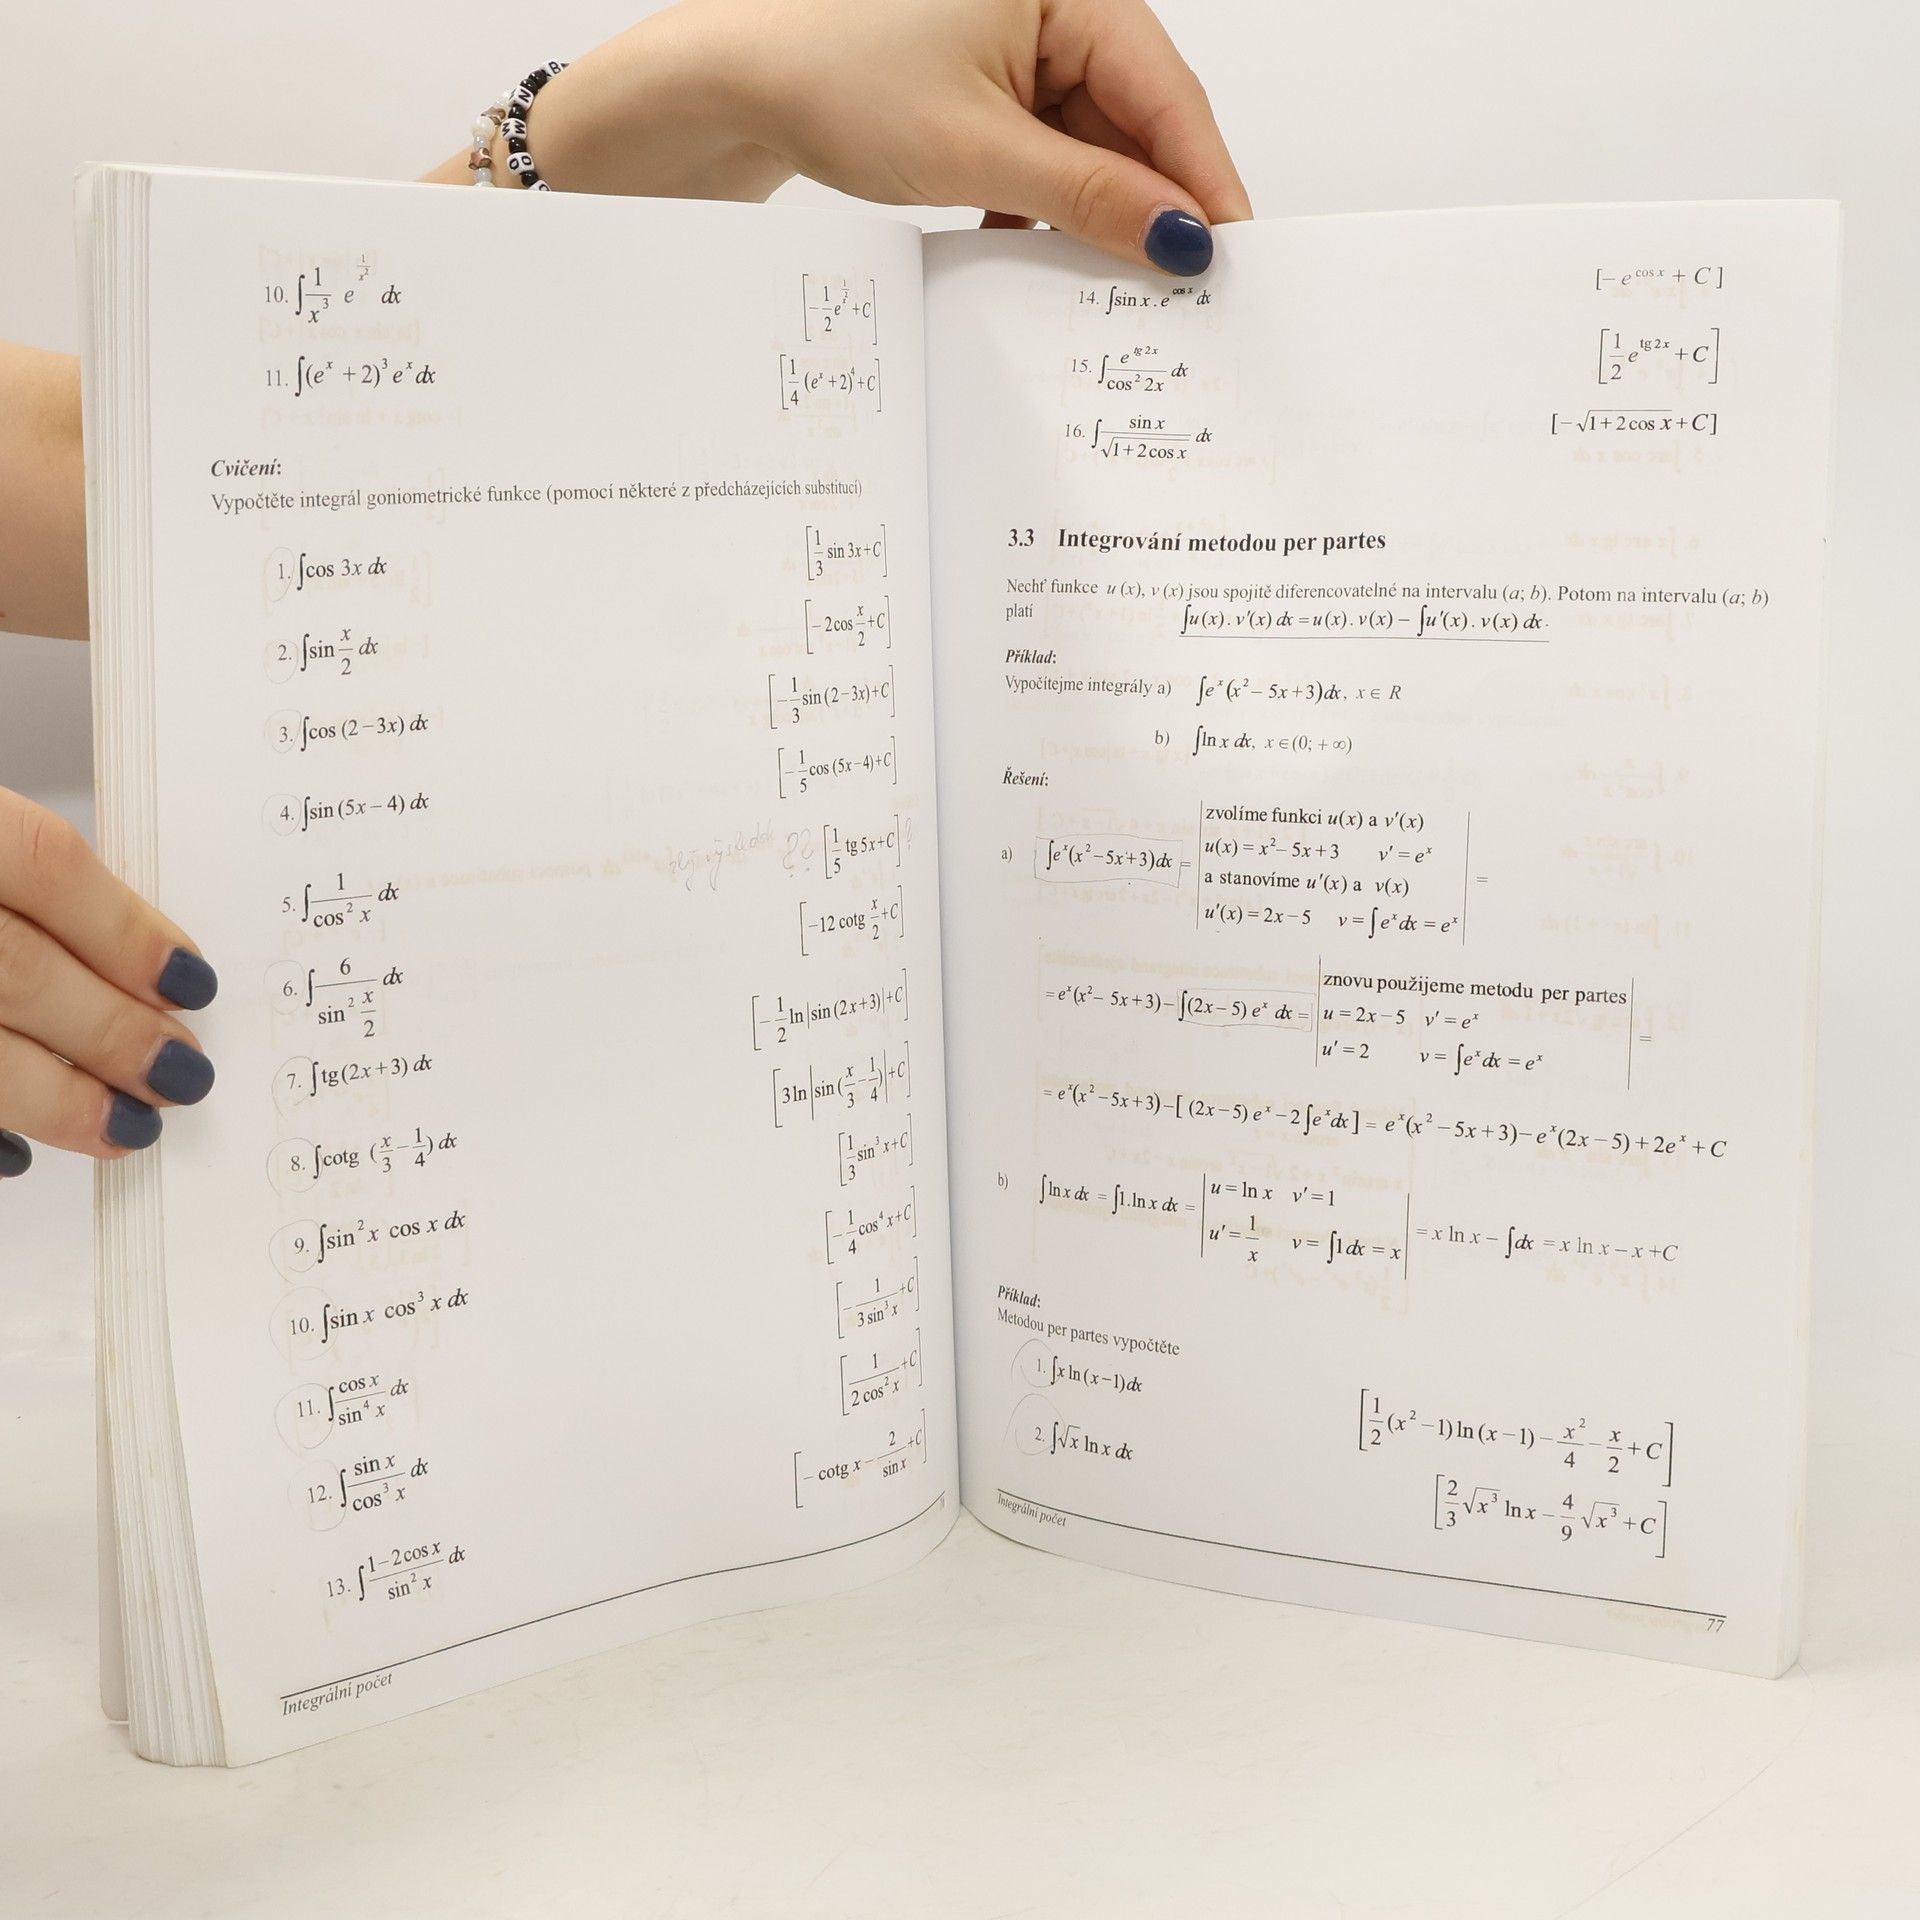 10. ∫ 1/x³ e^(1/x²) dx [-1/2 e^(1/x²) +C]
11. ∫(eˣ + 2)³ eˣ dx [1/4 (eˣ + 2)⁴ +C]
Cvičení:
Vypočtěte integrál goniometrické funkce (pomocí některé z předcházejících substitucí)
1. ∫cos 3x dx [1/3 sin 3x+C]
2. ∫sin x/2 dx [-2cos x/2 +C]
3. ∫cos (2−3x) dx [-1/3 sin (2−3x)+C]
4. ∫sin (5x − 4) dx [-1/5 cos (5x−4)+C]
5. ∫ 1/cos² x dx ?? [1/5 tg 5x+C] ?
6. ∫ 6/sin² x/2 dx [-12 cotg x/2 +C]
7. ∫tg (2x+3) dx [-1/2 ln|sin (2x+3)|+C]
8. ∫cotg (x/3 − 1/4) dx [3 ln|sin (x/3 − 1/4)|+C]
9. ∫sin² x cos x dx [1/3 sin³ x+C]
10. ∫sin x cos³ x dx [-1/4 cos⁴ x+C]
11. ∫ cos x/sin⁴ x dx [-1/(3 sin³ x) +C]
12. ∫ sin x/cos³ x dx [1/(2 cos² x) +C]
13. ∫ (1−2cos x)/sin² x dx [- cotg x − 2/sin x +C]
Integrální počet
14. ∫sin x . e^(cos x) dx [− e^(cos x) + C]
15. ∫ e^(tg 2x)/cos² 2x dx [1/2 e^(tg 2x) + C]
16. ∫ sin x/√(1+2cos x) dx [−√(1+2cos x)+C]
3.3 Integrování metodou per partes
Nechť funkce u (x), v (x) jsou spojitě diferencovatelné na intervalu (a; b). Potom na intervalu (a; b)
platí
∫u(x). v'(x) dx = u(x). v(x) − ∫u'(x). v(x) dx.
Příklad:
Vypočítejme integrály a) ∫eˣ(x² − 5x+3)dx, x ∈ R
b) ∫ln x dx, x ∈(0; + ∞)
Řešení:
zvolíme funkci u(x) a v'(x)
u(x) = x²− 5x+3 v' = eˣ
a) ∫eˣ(x²−5x+3)dx = a stanovíme u'(x) a v(x) =
u'(x) = 2x − 5 v = ∫eˣdx = eˣ
znovu použijeme metodu per partes
= eˣ(x²− 5x+3)− ∫(2x−5) eˣ dx = u = 2x−5 v' = eˣ =
u' = 2 v = ∫eˣdx = eˣ
= eˣ(x² − 5x+3)−[ (2x−5) eˣ − 2∫eˣdx] = eˣ(x² − 5x+3)−eˣ(2x−5)+2eˣ+C
b) ∫ln x dx = ∫1.ln x dx = u = ln x v' = 1
u' = 1/x v = ∫1dx = x = x ln x − ∫dx = x ln x − x +C
Příklad:
Metodou per partes vypočtěte
1. ∫x ln (x−1)dx [1/2 (x² −1) ln (x −1) − x²/4 − x/2 + C]
2. ∫√x ln x dx [2/3 √x³ ln x − 4/9 √x³ + C]
Integrální počet
77